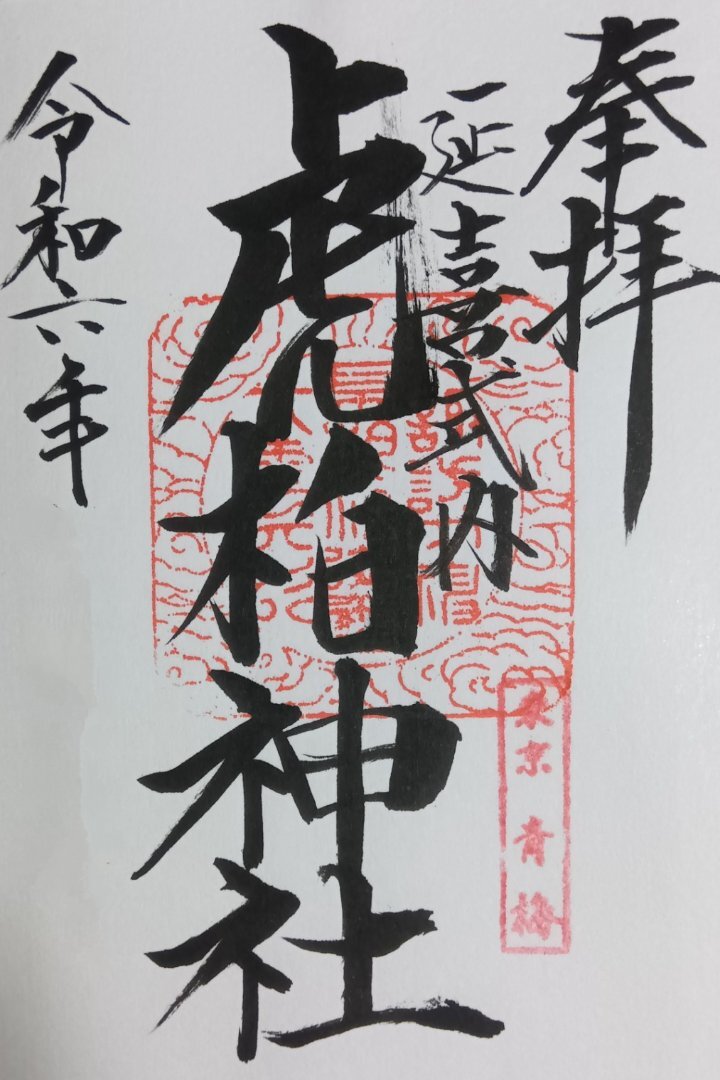 奉拝
延喜式内
虎柏神社
令和六年
東京 青梅